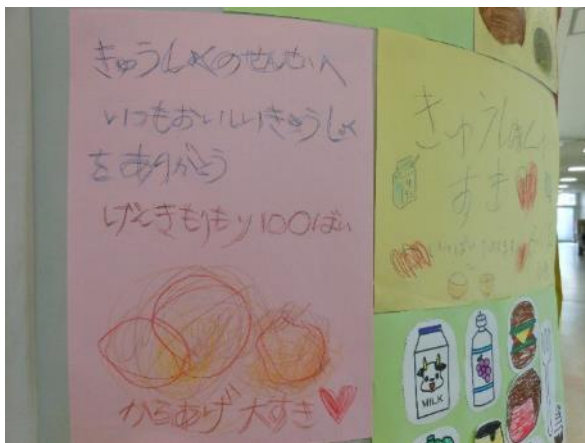 きゅうしょくのせんせいへ
いつもおいしいきゅうしょく
をありがとう
げんきもりもり100ばい
からあげ大すき
きゅうしょく
すき
MILK